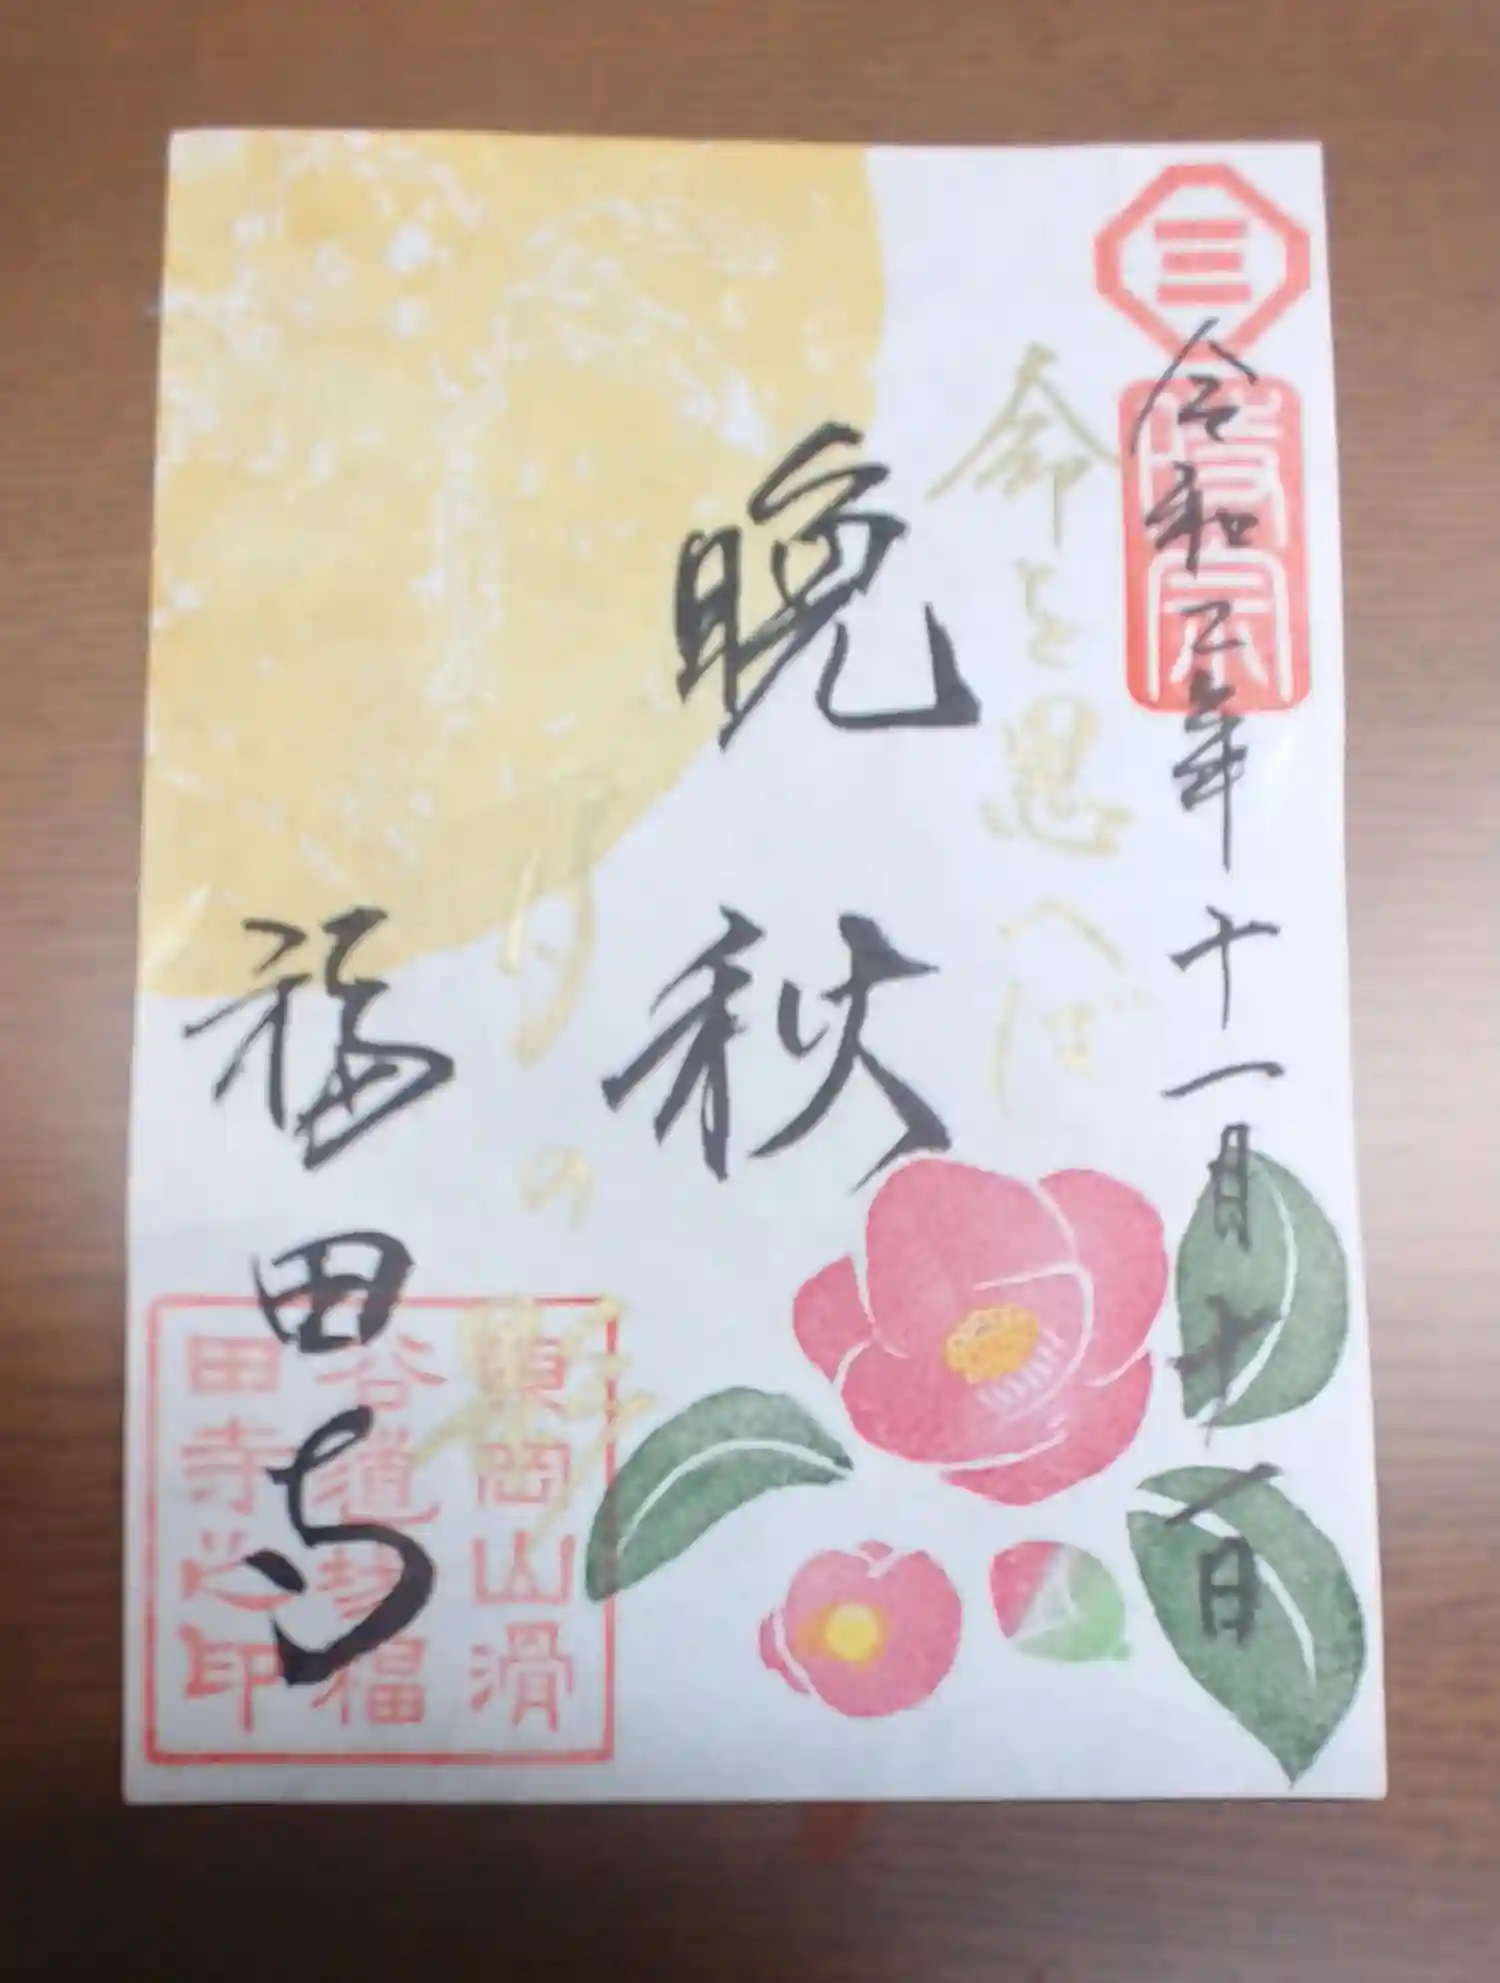 三
時宗
令和二年十一月十一日
命と思へば
晩秋
月の
福田寺
東岡山滑
谷道場福
田寺之印